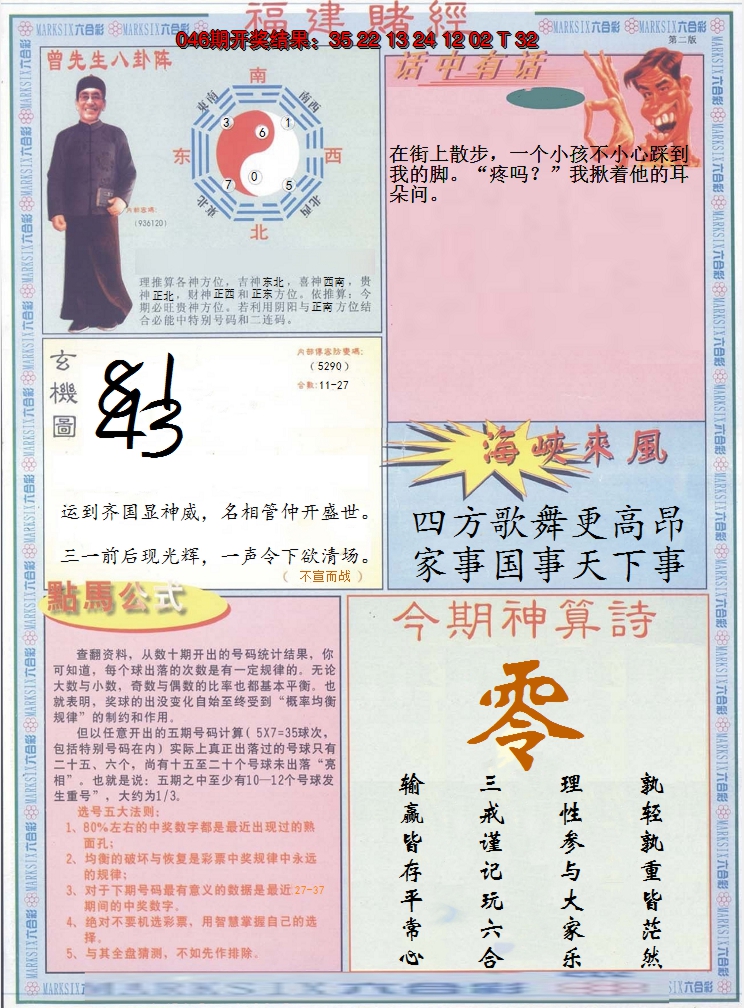 福建賭經
046期开奖结果：35 22 13 24 12 02 T 32
第二版
MARKSIX六合彩
曾先生八卦阵
南
東南
南西
东
西
東北
北西
北
3
6
1
7
0
5
(936120)
理推算各神方位，吉神东北，喜神西南，贵
神正北，财神正西和正东方位。依推算：今
期必旺贵神方位。若利用阴阳与正南方位结
合必能中特别号码和二连码。
话中有话
在街上散步，一个小孩不小心踩到
我的脚。“疼吗？”我揪着他的耳
朵问。
玄機圖
（5290）
合数:11-27
运到齐国显神威，名相管仲开盛世。
三一前后现光辉，一声令下欲清场。
（ 不宣而战 ）
海峽來風
四方歌舞更高昂
家事国事天下事
點馬公式
查翻资料，从数十期开出的号码统计结果，你
可知道，每个球出落的次数是有一定规律的。无论
大数与小数，奇数与偶数的比率也都基本平衡。也
就表明，奖球的出没变化自始至终受到“概率均衡
规律”的制约和作用。
但以任意开出的五期号码计算( 5X7=35球次，
包括特别号码在内）实际上真正出落过的号球只有
二十五、六个，尚有十五至二十个号球未出落“亮
相”。也就是说：五期之中至少有10—12个号球发
生重号”，大约为1/3。
选号五大法则：
1、80%左右的中奖数字都是最近出现过的熟
面孔；
2、均衡的破坏与恢复是彩票中奖规律中永远
的规律；
3、对于下期号码最有意义的数据是最近27-37
期间的中奖数字。
4、绝对不要机选彩票，用智慧掌握自己的选
择。
5、与其全盘猜测，不如先作排除。
今期神算詩
零
孰轻孰重皆茫然
理性参与大家乐
三戒谨记玩六合
输赢皆存平常心